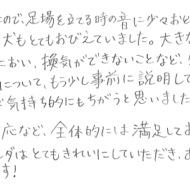 ので、足場を立てる時の音に少々おど
犬もとてもおびえていました。大きな
におい、換気ができないことなど、
について、もう少し事前に説明して
気持ち的にもちがうと思いました
応など、全体的には満足してお
ダはとてもきれいにしていただき、
す!